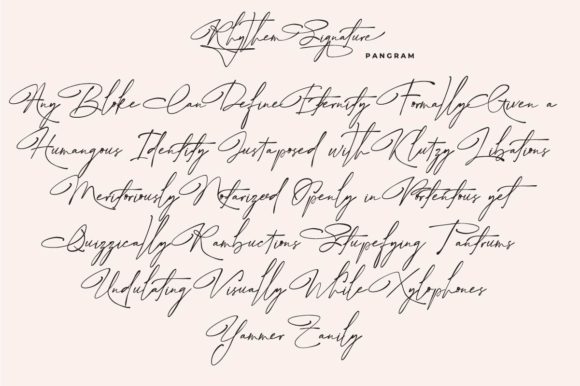 Rhythem Signature
PANGRAM
Any Bloke Can Define Eternity Formally Given a
Humangous Identity Juxtaposed with Klutzy Libations
Meritoriously Notarized Openly in Portentous yet
Quizzically Rambuctions Stupefying Tantrums
Undulating Visually While Xylophones
Yammer Zanily